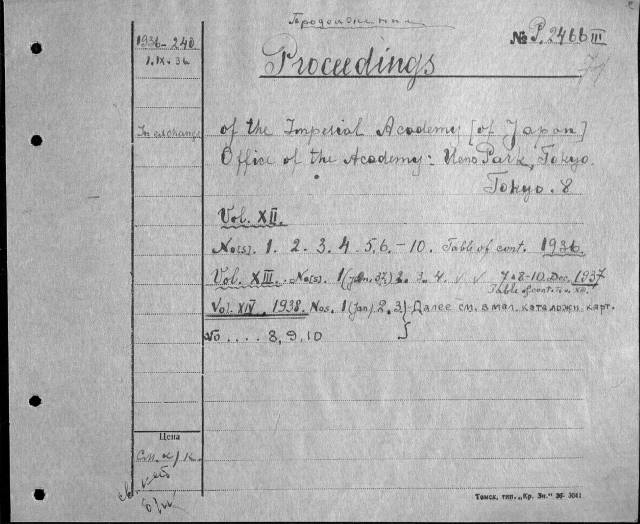 Продолжение
1936-240
1.IX.36
№ P.2466 III
Proceedings
In exchange
of the Imperial Academy [of Japan]
Office of the Academy: Ueno Park, Tokyo.
Tokyo. 8
Vol. XII.
No[s]. 1. 2. 3. 4. 5, 6. - 10. Table of cont. 1936.
Vol. XIII. No[s]. 1 (jan. 37) 2. 3. 4. v v 7. 8-10. Dec. 1937
Table of cont. to v. XIII.
Vol. XIV. 1938. Nos. 1 (Jan) 2. 3. Далее см. в мал. каталожн. карт.
No .... 8, 9, 10 }
Цена
См. к/к.
Томск, тип. „Кр. Зн." 36- 3041